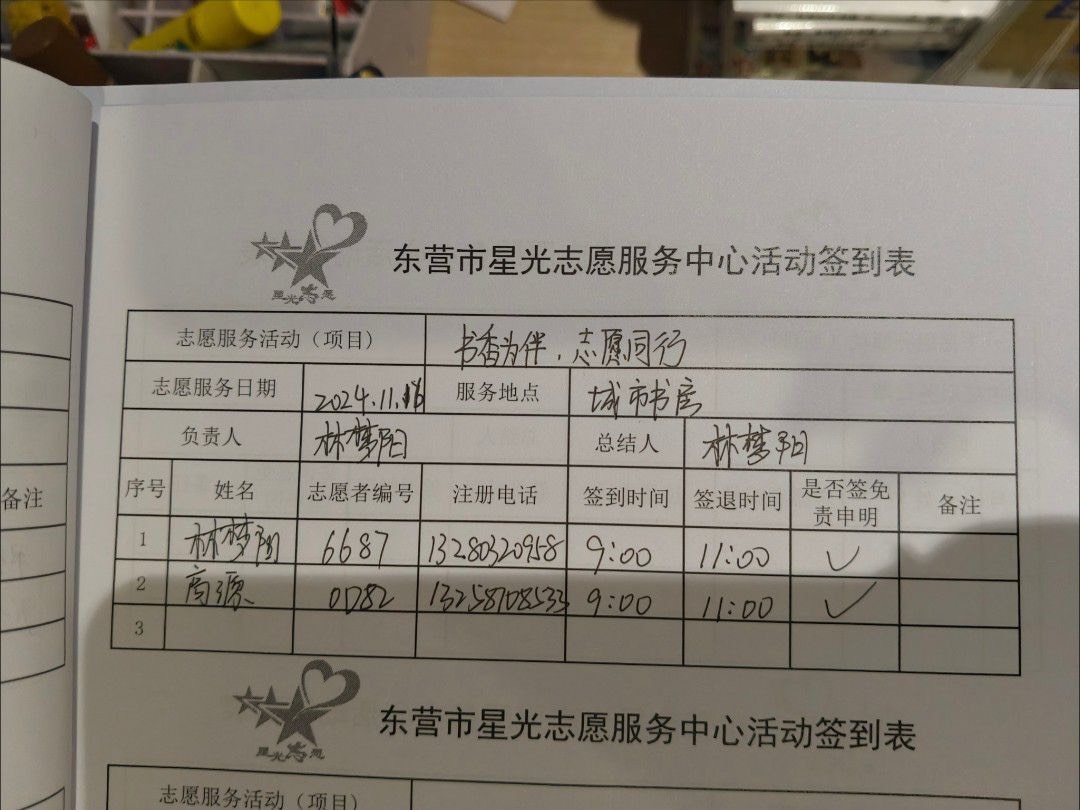 星光志愿
东营市星光志愿服务中心活动签到表
志愿服务活动（项目） 书香为伴，志愿同行
志愿服务日期 2024.11.16 服务地点 城市书房
负责人 林梦阳 总结人 林梦阳
序号 姓名 志愿者编号 注册电话 签到时间 签退时间 是否签免责申明 备注
备注
1 林梦阳 6687 13280320958 9:00 11:00 ✓
2 高源 0782 13258708533 9:00 11:00 ✓
3
星光志愿
东营市星光志愿服务中心活动签到表
志愿服务活动（项目）